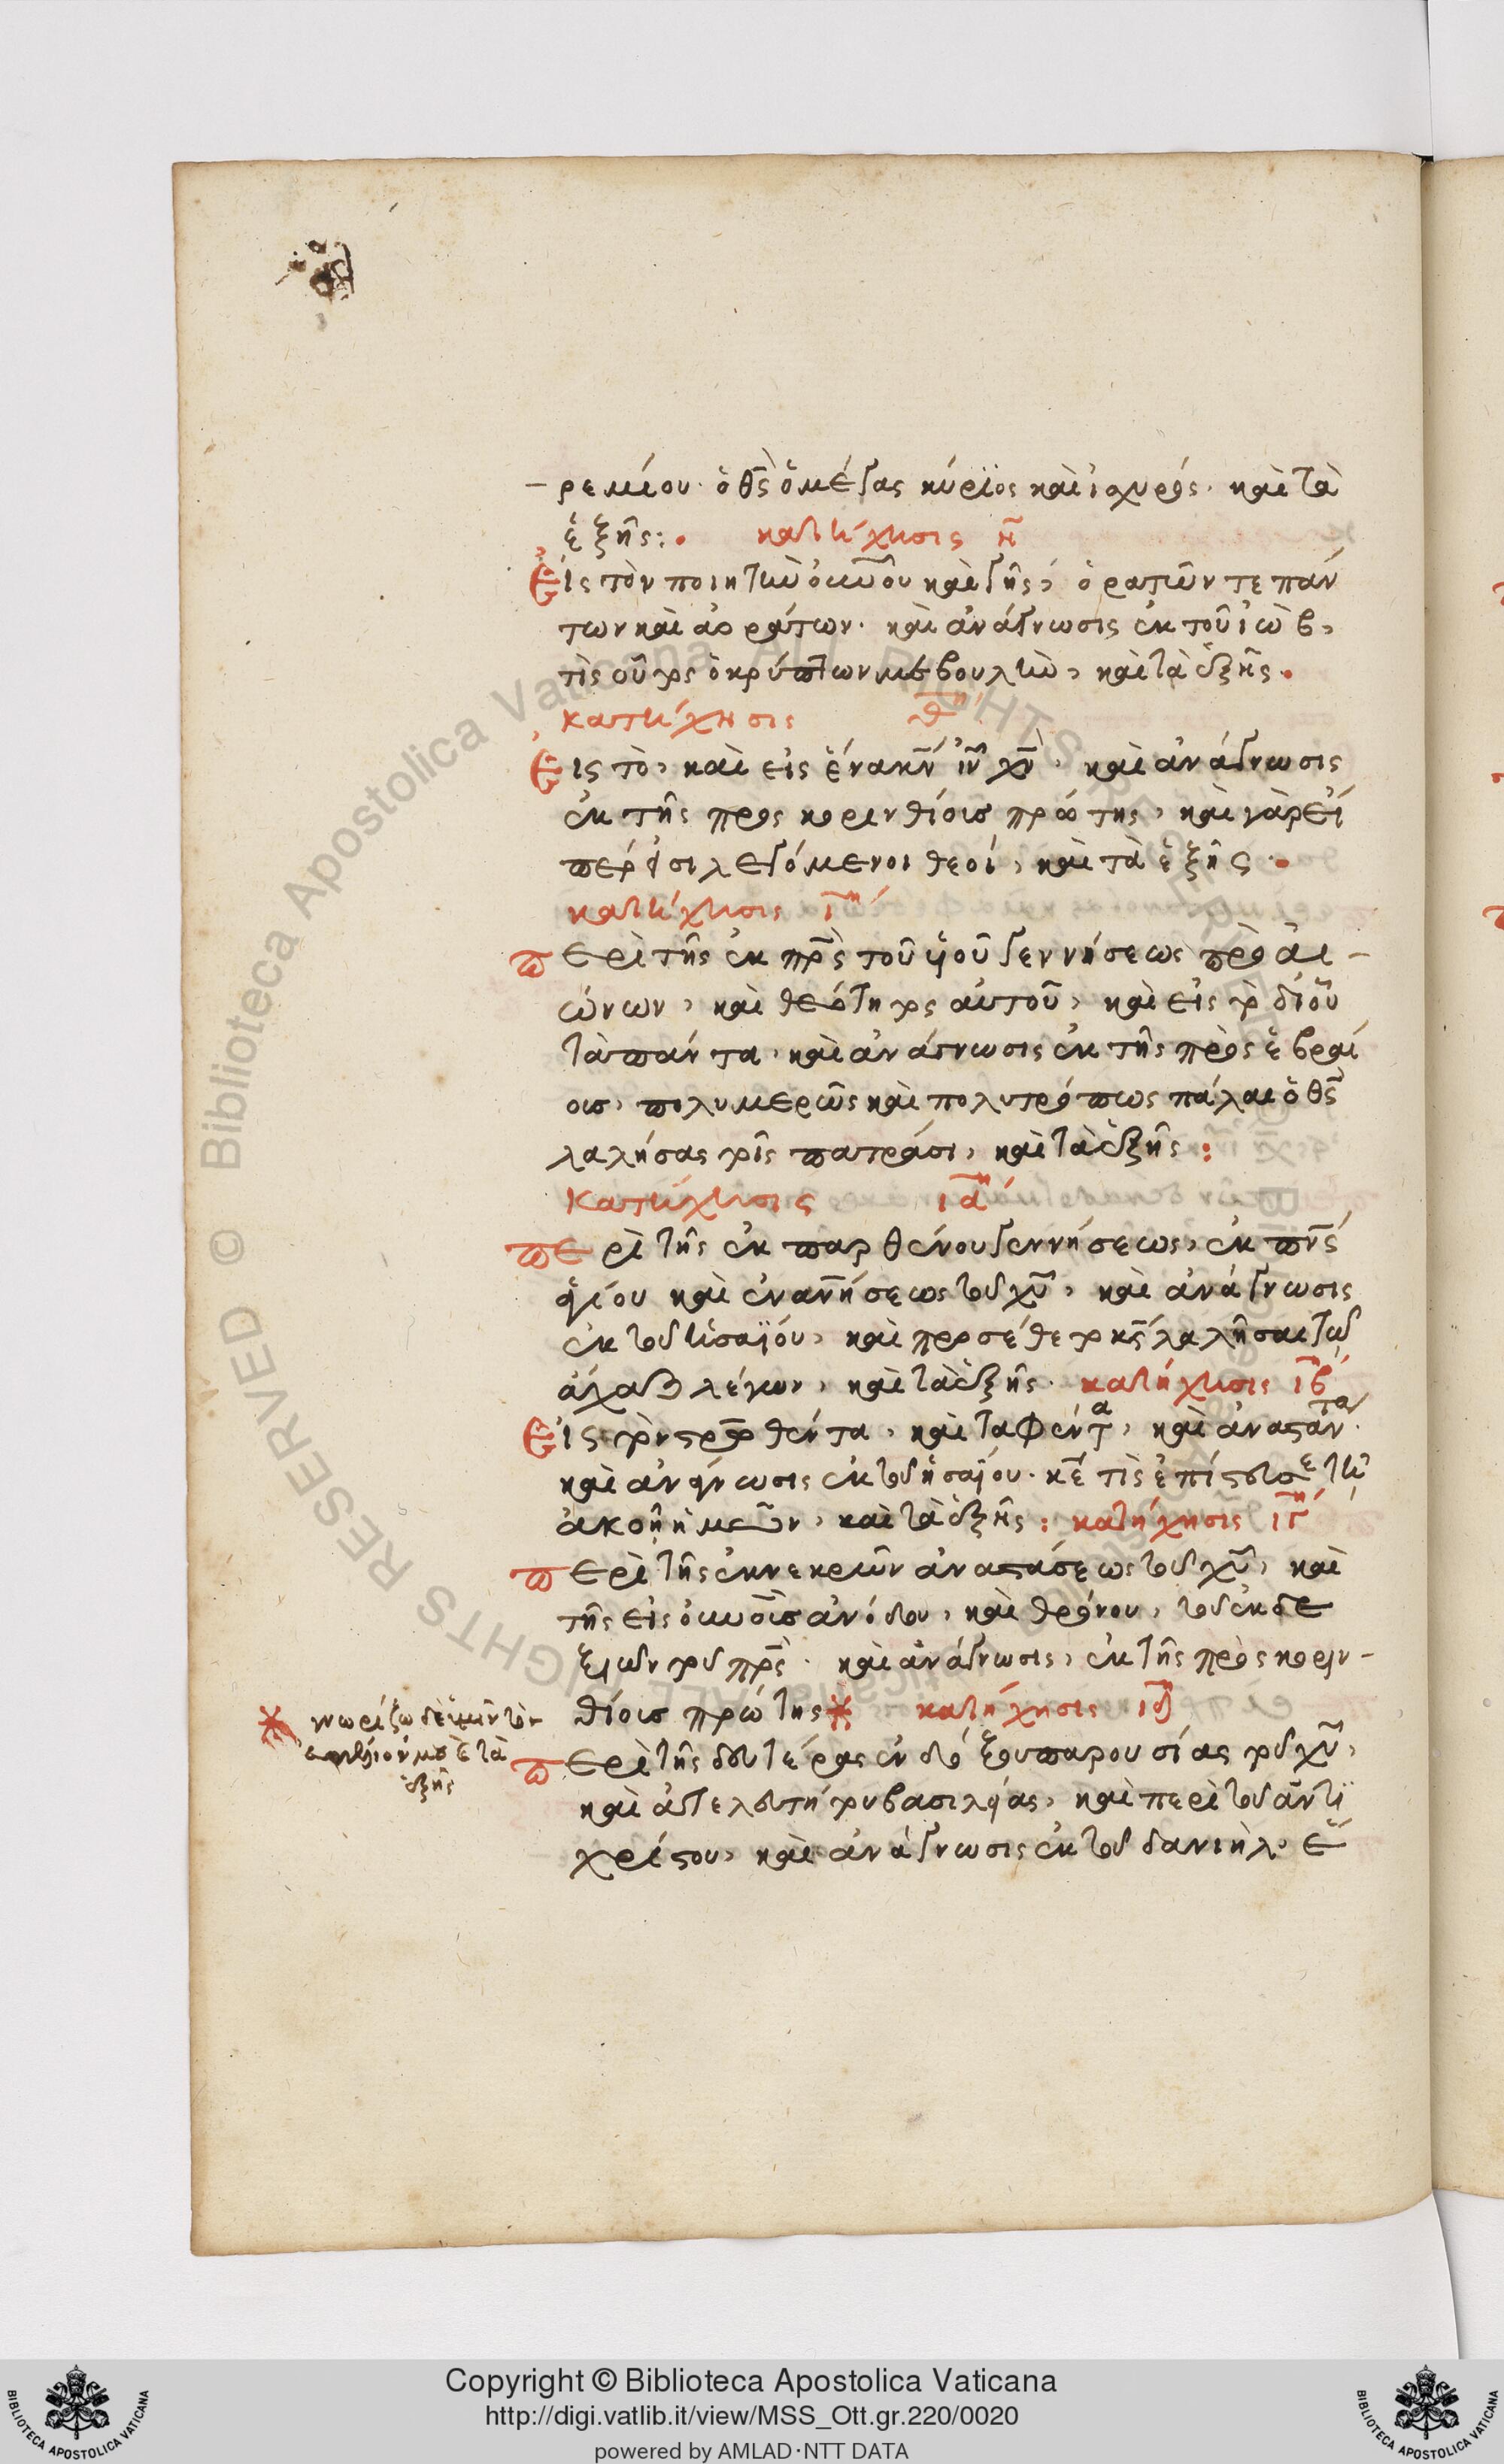 ρεμίου· ὁ θς ὁ μέγας κύριος καὶ ἰσχυρός· καὶ τὰ
ἑξῆς: κατήχησις η
Εἰς τὸν ποιητὴν οὐνοῦ καὶ γῆς, ὁρατῶν τε πάν
των καὶ ἀοράτων· καὶ ἀνάγνωσις ἐκ τοῦ ἰὼβ,
τὶς οὗτος ὁ κρύπτων με βουλὴν, καὶ τὰ ἑξῆς.
κατήχησις θ
Εἰς τὸ, καὶ εἰς ἕνα κν ιν χν, καὶ ἀνάγνωσις
ἐκ τῆς προς κορινθίους πρώτης, καὶ γὰρ εἴ
περ εἰσὶ λεγόμενοι θεοί, καὶ τὰ ἑξῆς.
κατήχησις ι
Περὶ τῆς ἐκ πρς τοῦ υἱοῦ γεννήσεως πρὸ αἰ-
ώνων, καὶ θεότητος αὐτοῦ, καὶ εἰς τὸ δι' οὗ
τὰ πάντα· καὶ ἀνάγνωσις ἐκ τῆς πρὸς ἑβραί
ους, πολυμερῶς καὶ πολυτρόπως πάλαι ὁ θς
λαλήσας τοῖς πατράσι, καὶ τὰ ἑξῆς:
Κατήχησις ια
Περὶ τῆς ἐκ παρθένου γεννήσεως, ἐκ πνς
ἁγίου καὶ ἐναν̅ήσεως τοῦ χυ, καὶ ἀνάγνωσις
ἐκ τοῦ ἡσαΐου, καὶ προσέθετο κς λαλῆσαι τῷ
ἄχαζ λέγων, καὶ τὰ ἑξῆς· κατήχησις ιβ
Εἰς τὸν στρωθέντα, καὶ ταφέντα, καὶ ἀναστάντα·
καὶ ἀνάγνωσις ἐκ τοῦ ἡσαΐου. κε τὶς ἐπίστευσε τῇ
ἀκοῇ ἡμῶν, καὶ τὰ ἑξῆς: κατήχησις ιγ
Περὶ τῆς ἐκ νεκρῶν ἀναστάσεως τοῦ χυ, καὶ
τῆς εἰς οὐνοὺς ἀνόδου, καὶ θρόνου, τοῦ ἐκ δε
ξιῶν τοῦ πρς· καὶ ἀνάγνωσις, ἐκ τῆς πρὸς κοριν-
θίους πρώτης* κατήχησις ιδ
* γνωρίζω δὲ ὑμῖν τὸ
εὐαγγέλιόν μου καὶ τὰ
ἑξῆς
Περὶ τῆς δευτέρας ἐνδόξου παρουσίας τοῦ χυ,
καὶ ἀτελευτήτου βασιλείας, καὶ περὶ τοῦ ἀντι
χρίστου, καὶ ἀνάγνωσις ἐκ τοῦ δανιήλ· ἐ
Copyright © Biblioteca Apostolica Vaticana
http://digi.vatlib.it/view/MSS_Ott.gr.220/0020
powered by AMLAD·NTT DATA
BIBLIOTECA APOSTOLICA VATICANA
BIBLIOTECA APOSTOLICA VATICANA
Biblioteca Apostolica Vaticana ALL RIGHTS RESERVED ©